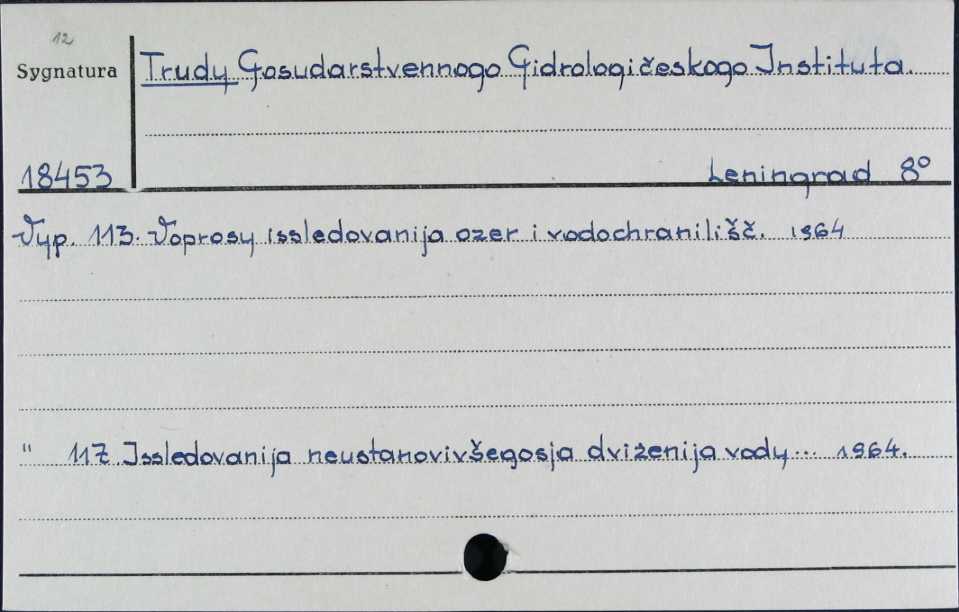 12
Sygnatura
Trudy Gosudarstvennogo Gidrologičeskogo Instituta.
18453
Leningrad 8°
Vyp. 113. Voprosy issledovanija ozer i vodochranilišč. 1964
" 117. Issledovanija neustanovivšegosja dviženija vody... 1964.